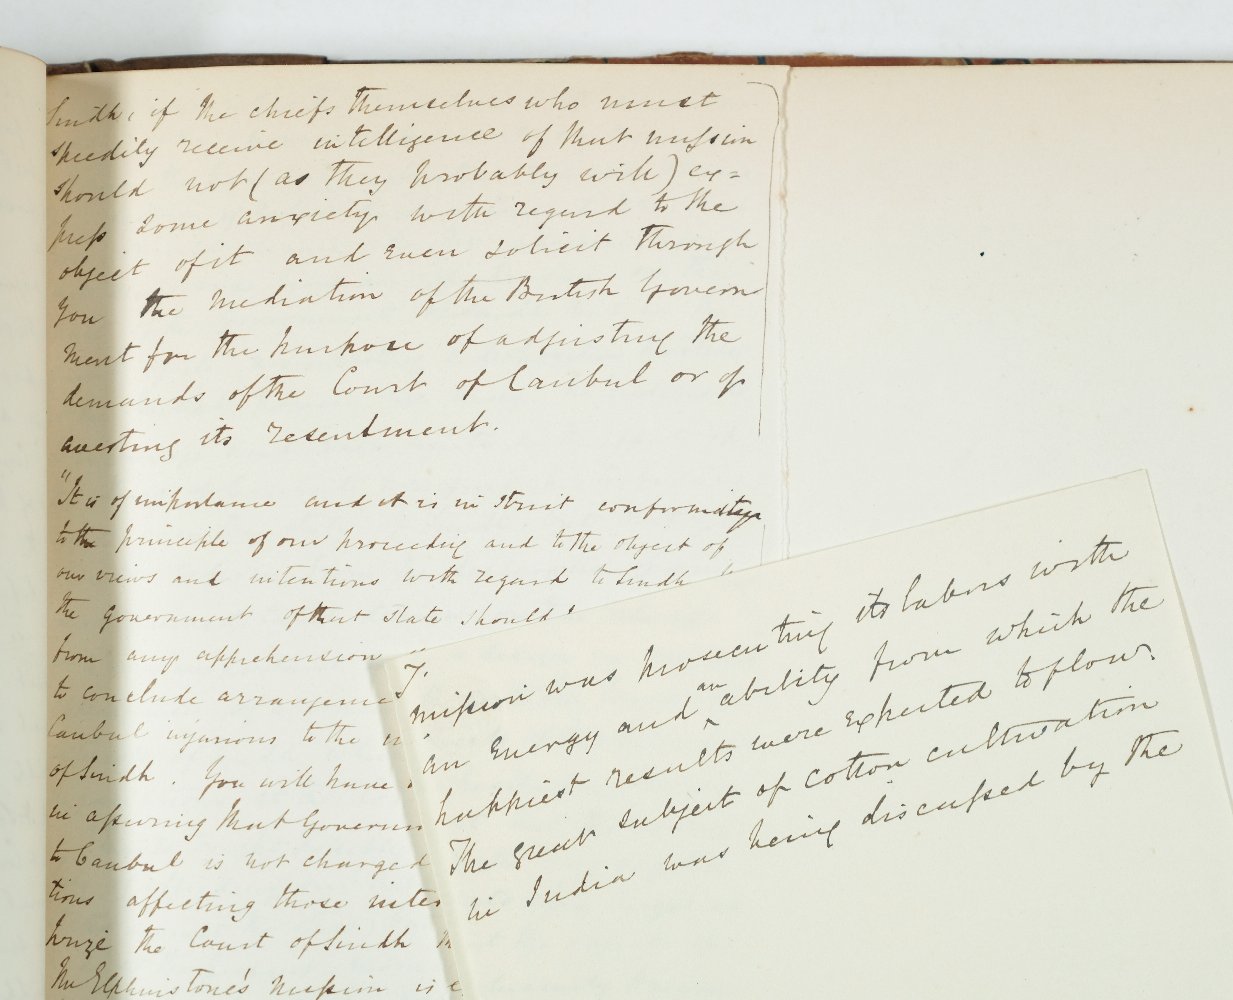 Sindh, if the chiefs themselves who must
speedily receive intelligence of that mission
should not (as they probably will) ex=
press some anxiety with regard to the
object of it and even solicit through
you the mediation of the British Govern
ment for the purpose of adjusting the
demands of the Court of Caubul or of
averting its resentment.
"It is of importance and it is in strict conformity
to the principle of our proceeding and to the object of
our views and intentions with regard to Sindh
the Government of that state should
from any apprehension
to conclude arrangeme
Caubul injurious to the
of Sindh. You will have
in assuring that Governm
to Caubul is not charged
tions affecting those inter
prize the Court of Sindh
Mr Elphinstone's Mission is
mission was prosecuting its labors with
an energy and an ability from which the
happiest results were expected to flow.
The great subject of cotton cultivation
in India was being discussed by the